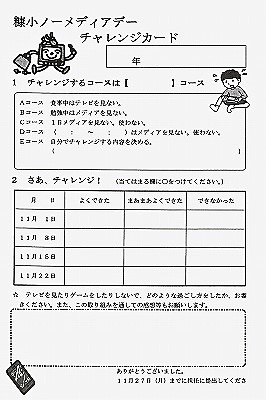 糠小ノーメディアデー
チャレンジカード
年
1 チャレンジするコースは【 】コース
Aコース 食事中はテレビを見ない。
Bコース 勉強中はメディアを見ない。
Cコース 1日メディアを見ない、使わない。
Dコース （ ： ～ ： ）はメディアを見ない。使わない。
Eコース 自分でチャレンジする内容を決める。
〔 〕
2 さあ、チャレンジ！ （当てはまる欄に○をつけてください。）
月 日 よくできた まあまあよくできた できなかった
11月 1日
11月 8日
11月15日
11月22日
☆ テレビを見たりゲームをしたりしないで、どのような過ごし方をしたか、お書
きください。また、この取り組みを通しての感想等もお願いします。
ありがとうございました。
11月27日（月）までに担任に提出してくださ